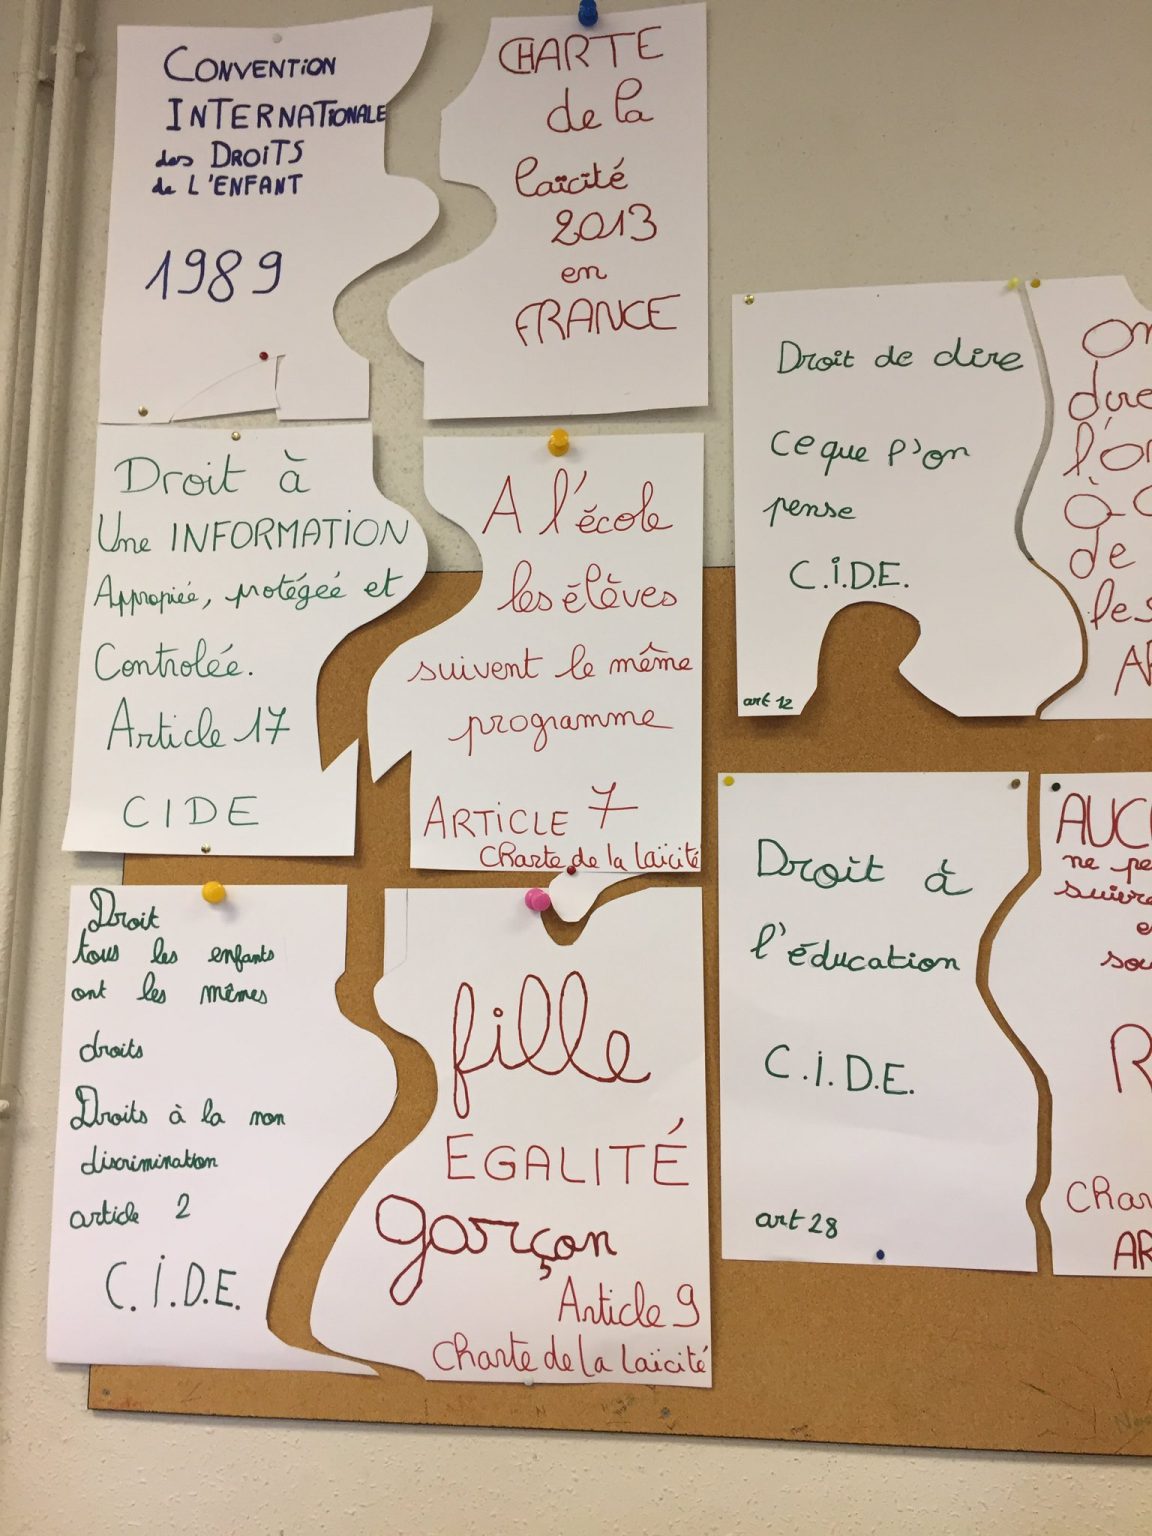 CONVENTION
INTERNATIONALE
des DROITS
de L'ENFANT
1989
CHARTE
de la
laïcité
2013
en
FRANCE
Droit à
Une INFORMATION
Appropiée, protégéé et
Contrôlée.
Article 17
CIDE
A l'école
les élèves
suivent le même
programme
ARTICLE 7
Charte de la laïcité
Droit
tous les enfants
ont les mêmes
droits
Droits à la non
discrimination
article 2
C.I.D.E.
fille
EGALITÉ
garçon
Article 9
Charte de la laïcité
Droit de dire
ce que l'on
pense
C.I.D.E.
art 12
On
dire
l'on
de
Droit à
l'éducation
C.I.D.E.
art 28
AUC
ne pe
suivre
R
Char
AR